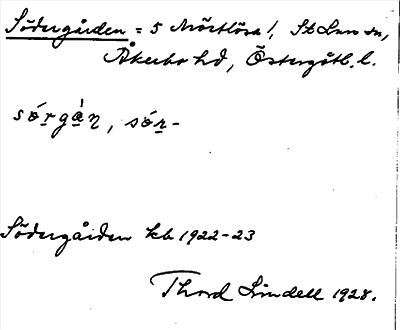 Södergården = 5 Mörtlösa 1, St Lars sn,
Åkerbo hd, Östergötl. l.
sǿrgàn, sǿr-
Södergården kb 1922-23
Thord Lindell 1928.